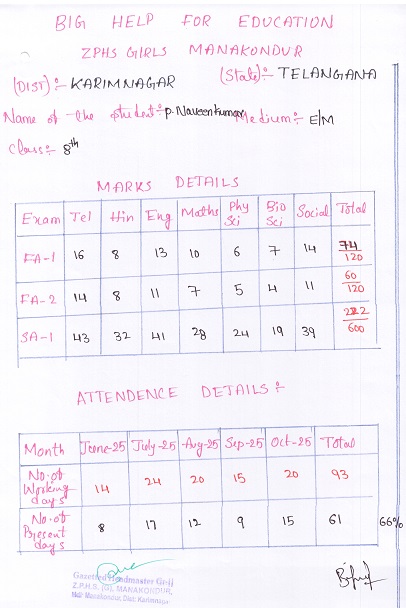 BIG HELP FOR EDUCATION
ZPHS GIRLS MANAKONDUR
(DIST):- KARIMNAGAR (State):- TELANGANA
Name of the student:- P. Naveen kumar Medium:- E/M
Class:- 8th
MARKS DETAILS
Exam Tel Hin Eng Maths Phy Sci Bio Sci Social Total
FA-1 16 8 13 10 6 7 14 74/120
FA-2 14 8 11 7 5 4 11 60/120
SA-1 43 32 41 28 24 19 39 222/600
ATTENDENCE DETAILS:-
Month June-25 July-25 Aug-25 Sep-25 Oct-25 Total
No. of Working days 14 24 20 15 20 93
No. of Present days 8 17 12 9 15 61 66%
Gazetted Headmaster Gr-II
Z.P.H.S. (G), MANAKONDUR,
Mdl: Manakondur, Dist: Karimnagar